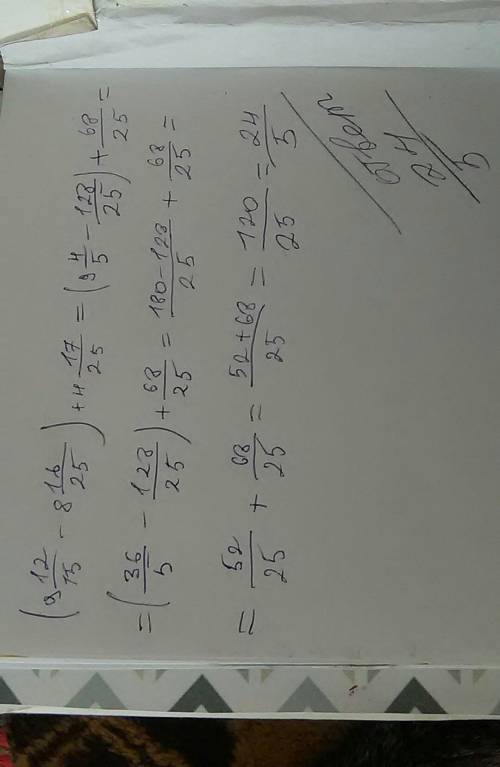 (9 12/15 - 8 16/25) + 4 17/25 = (9 4/5 - 128/25) + 68/25 =
= (36/5 - 128/25) + 68/25 = (180-128)/25 + 68/25 =
= 52/25 + 68/25 = (52+68)/25 = 120/25 = 24/5
Ответ
24/5